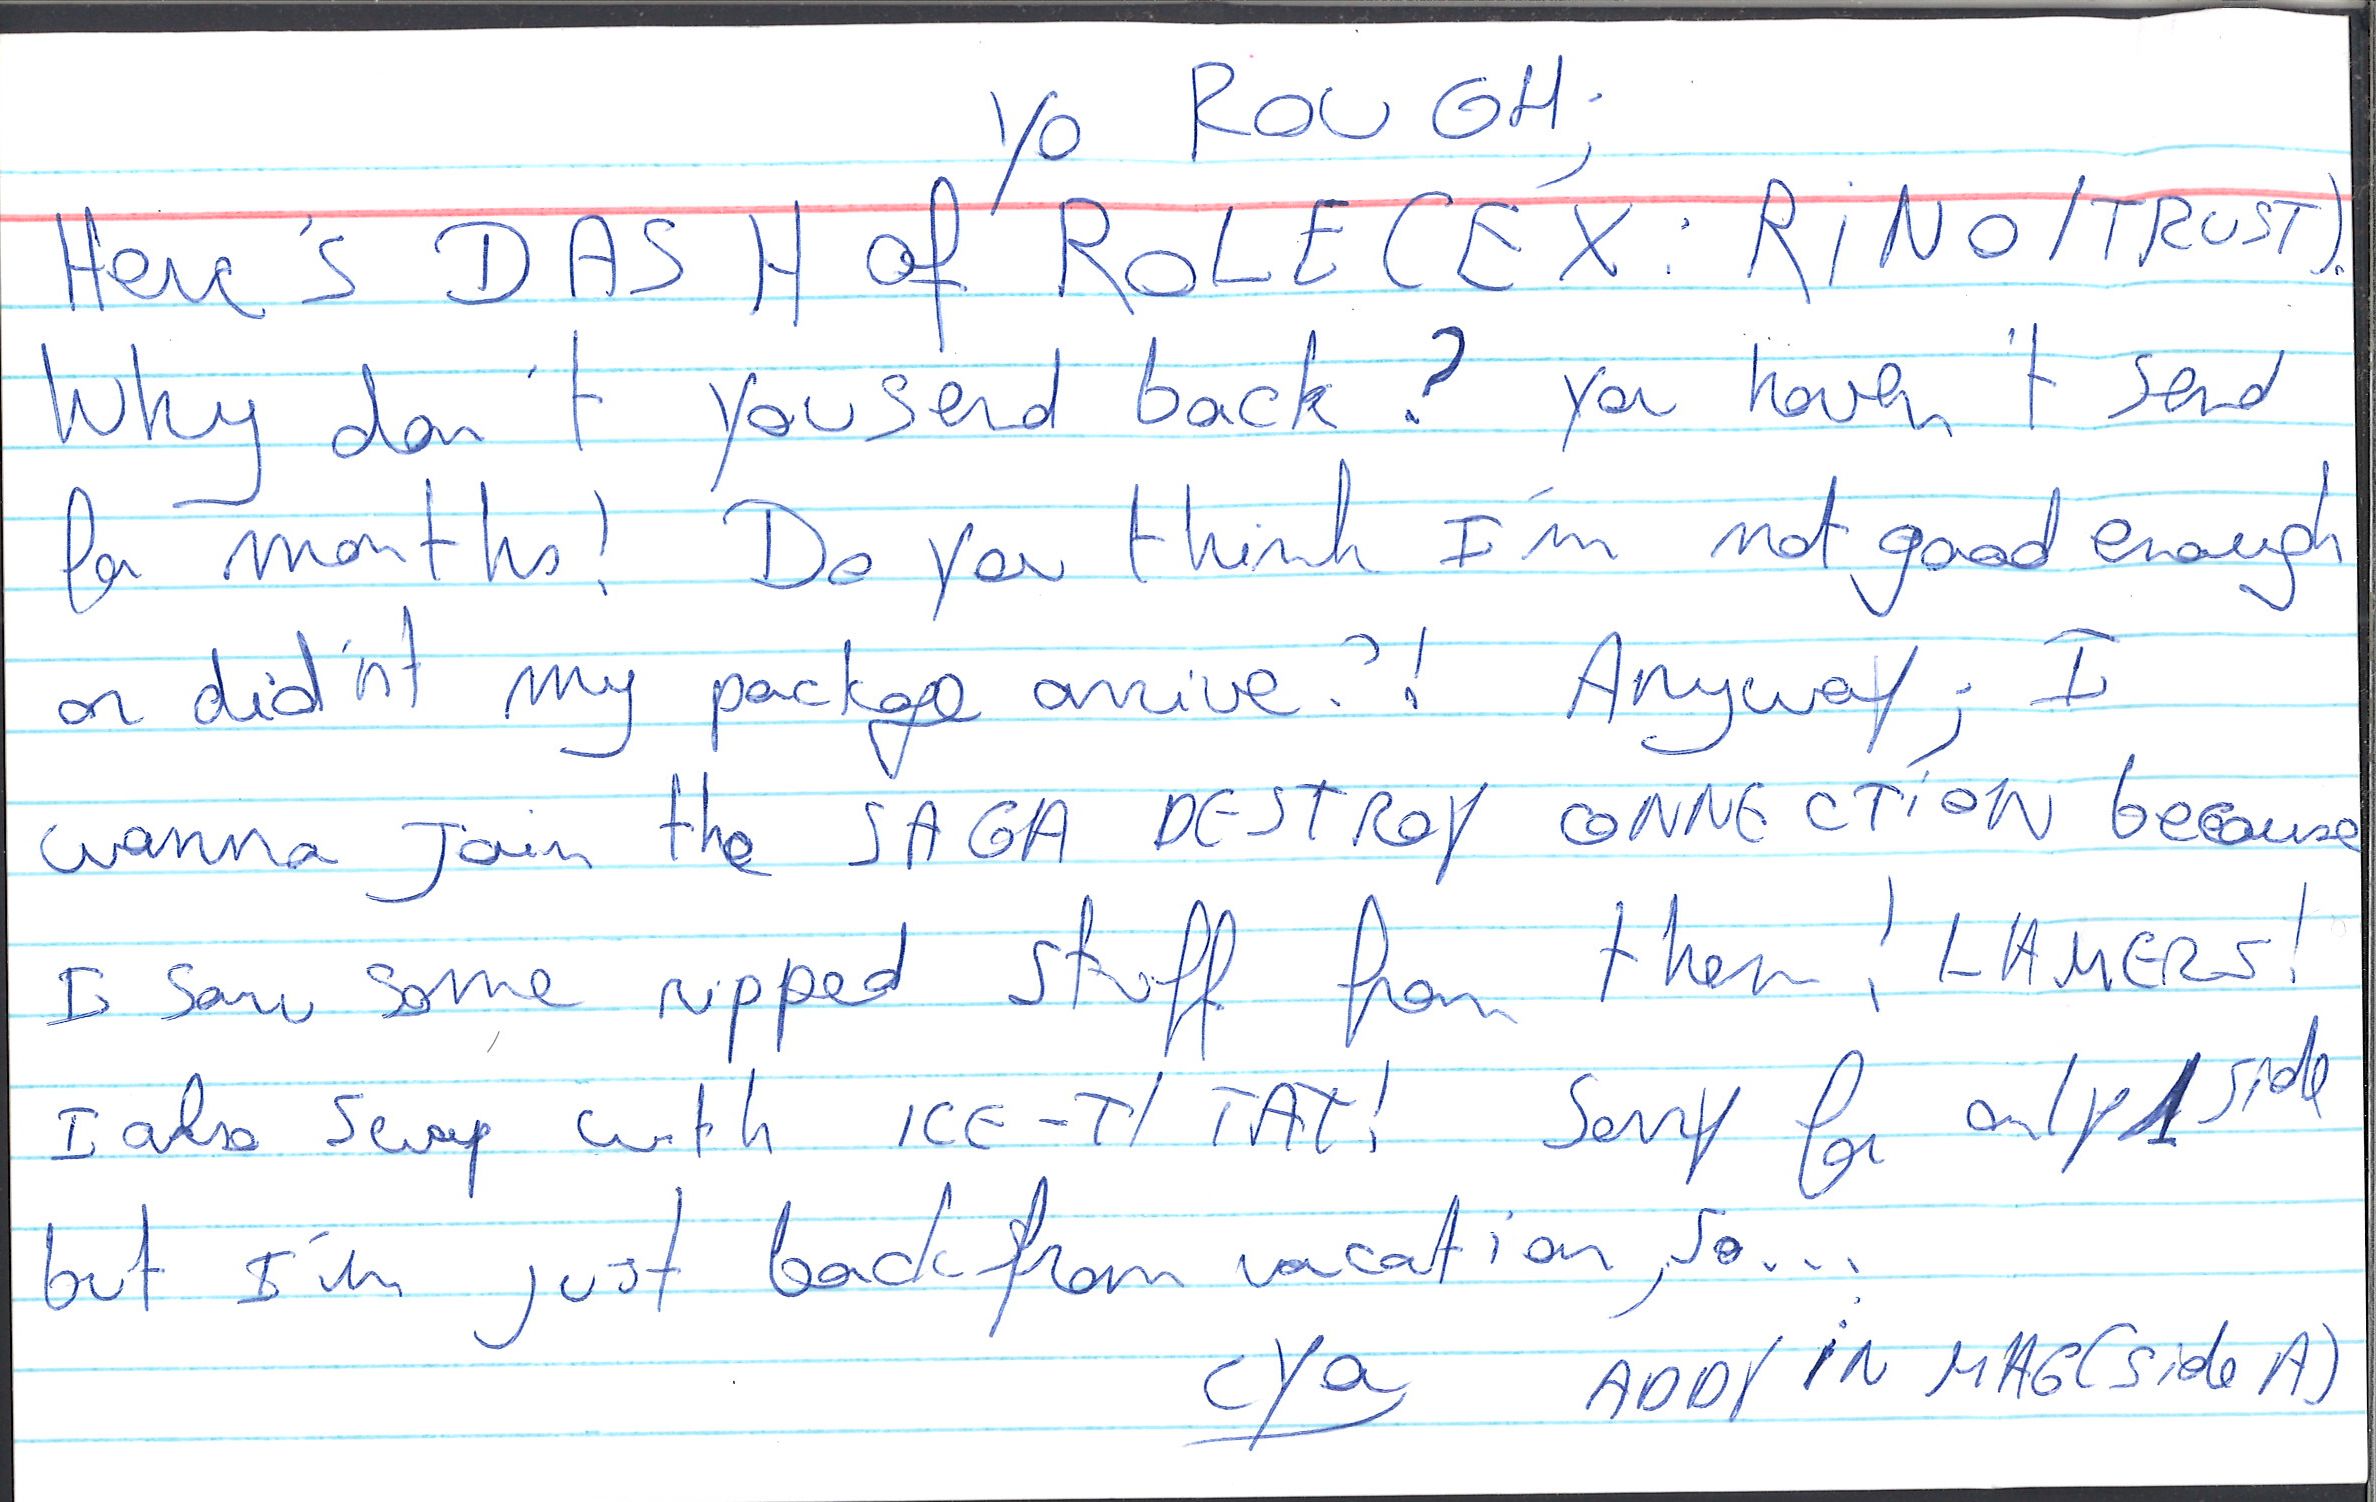 Yo ROUGH;
Here's DASH of ROLE (EX: RiNO/TRUST).
Why don't you send back? You haven't send
for months! Do you think I'm not good enough
or did'nt my package arrive?! Anyway, I
wanna join the SAGA DESTROY CONNECTiON because
I saw some ripped stuff from them! LAMERS!
I also swap with ICE-T/TAT! Sorry for only 1 side
but I'm just back from vacation, so...
CYa ADDY iN MAG (side A)